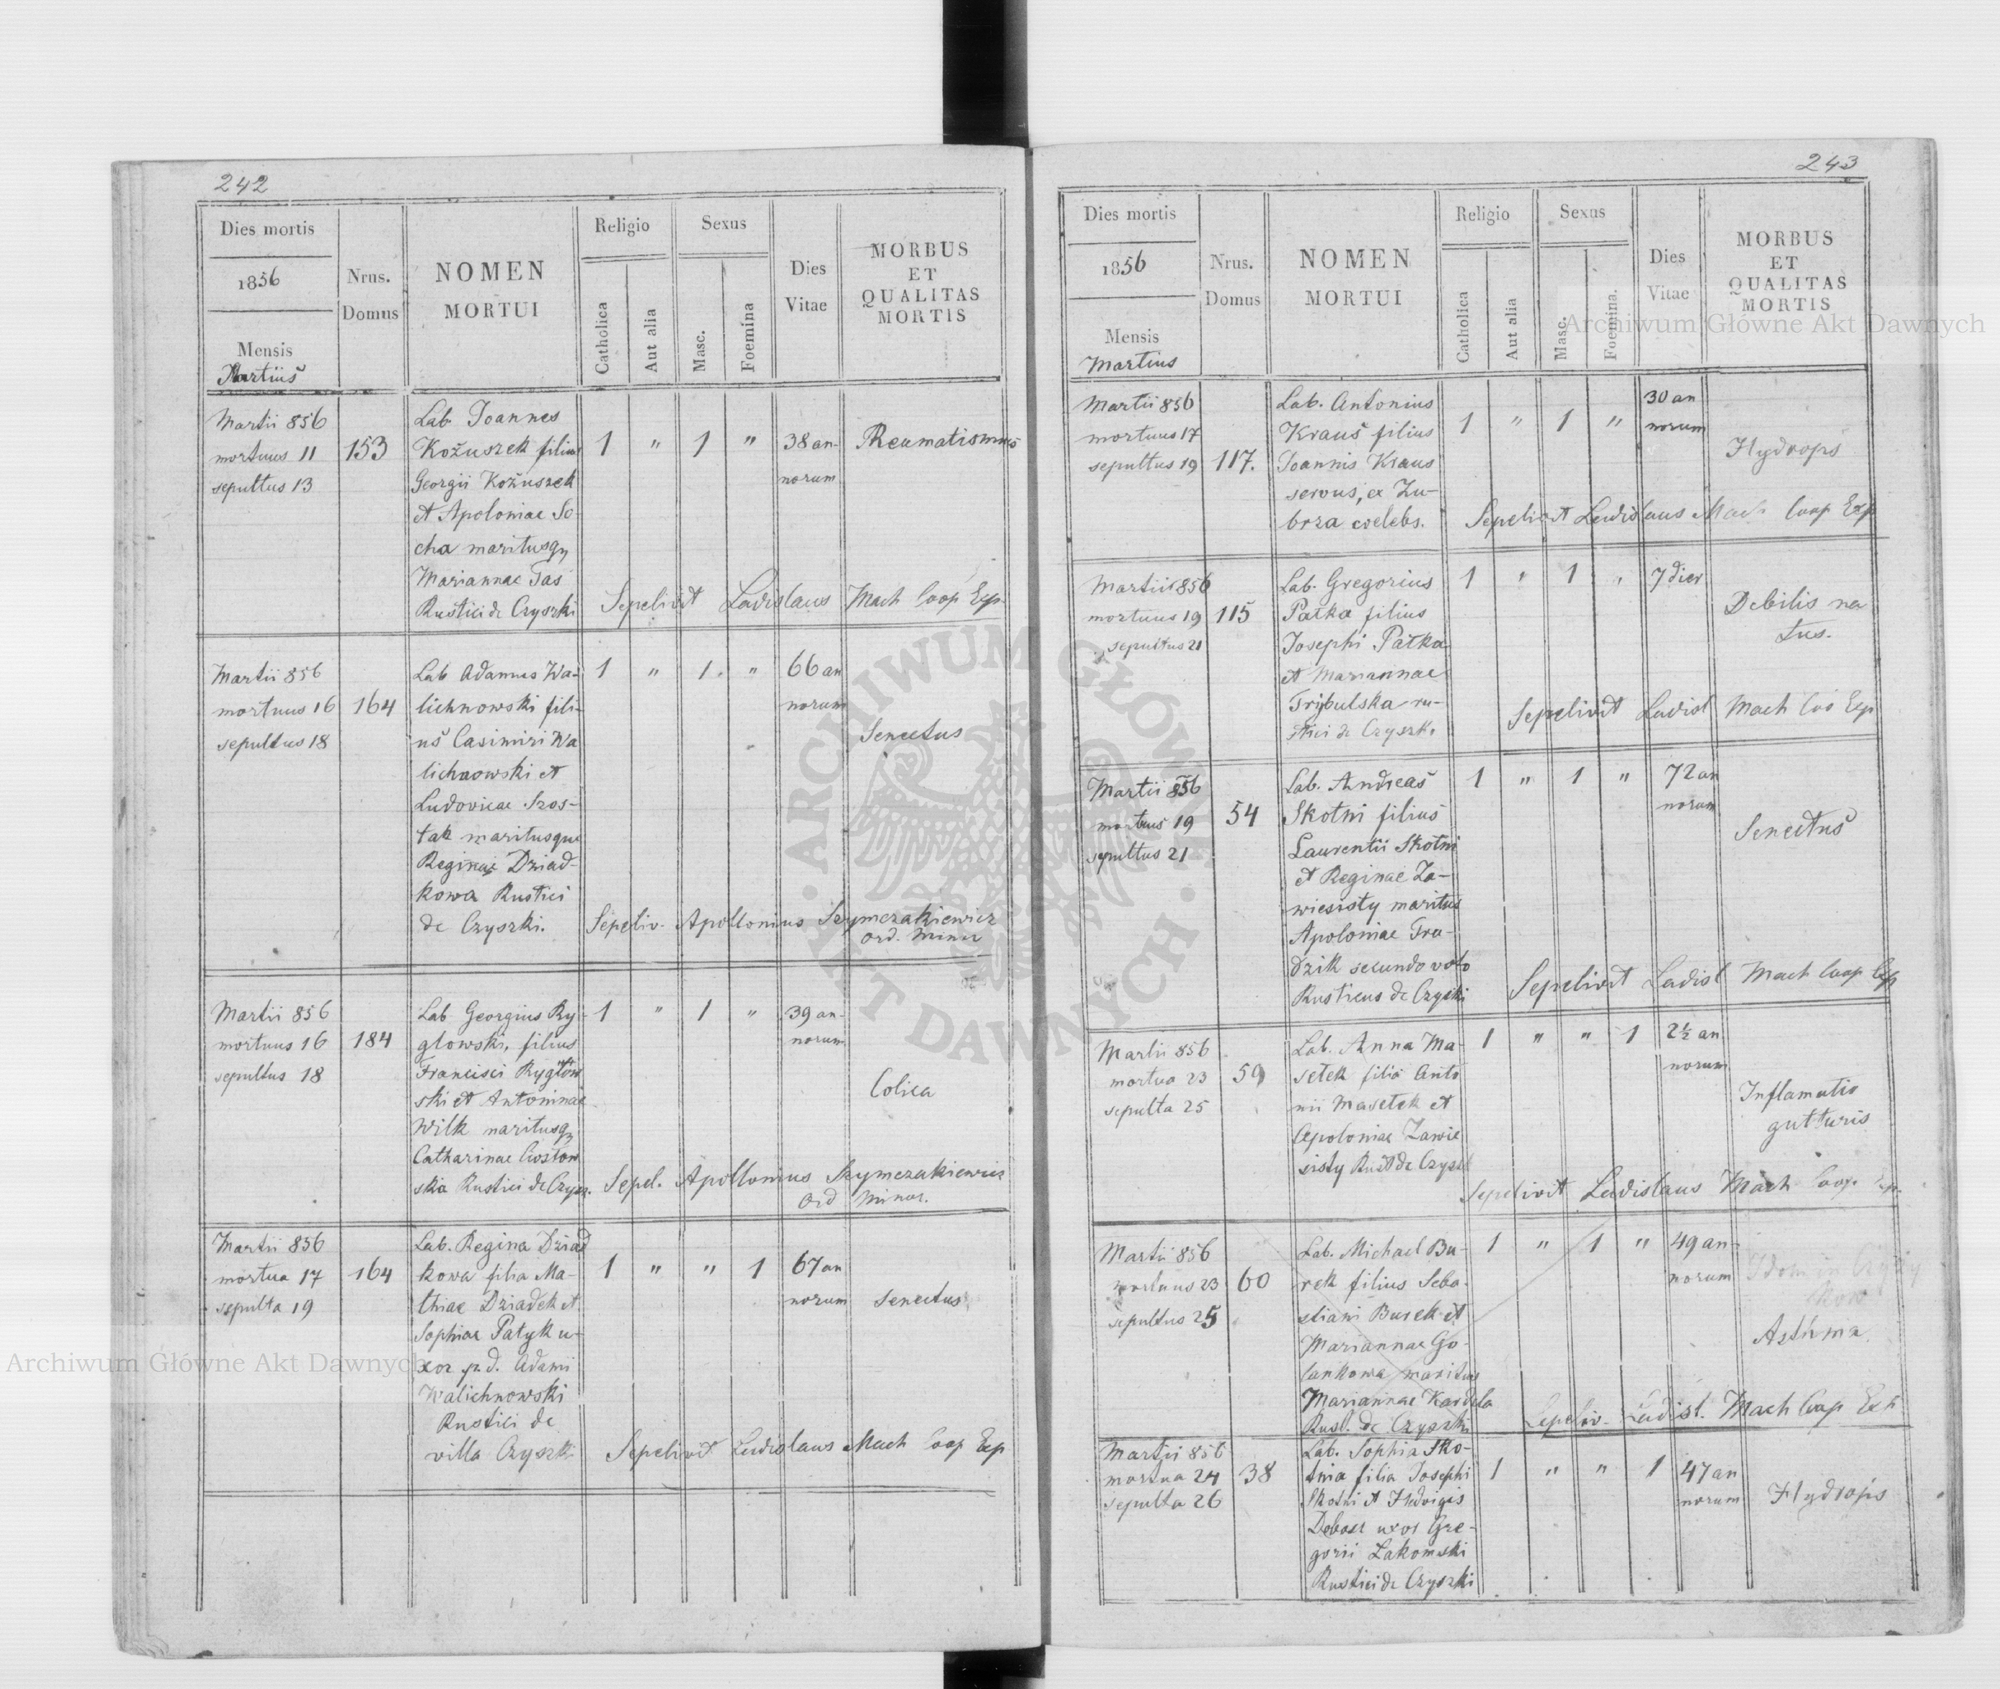 242
Dies mortis
1856
Mensis
Martius
Nrus.
Domus
NOMEN
MORTUI
Religio
Catholica
Aut alia
Sexus
Masc.
Foemina
Dies
Vitae
MORBUS
ET
QUALITAS
MORTIS
Martii 856
mortuus 11
sepultus 13
153
Lab Joannes
Kożuszek filius
Georgii Kożuszek
et Apoloniae So-
cha maritusq
Mariannae Tas
Rustici de Czyszki
1 " 1 "
38 an-
norum
Rheumatismus
Sepelivit Ladislaus Mach Coop Exp.
Martii 856
mortuus 16
sepultus 18
164
Lab Adamus Wa-
lichnowski fili-
us Casimiri Wa
lichnowski et
Ludovicae Szos-
tak maritusque
Reginae Dziad-
kowa Rustici
de Czyszki.
1 " 1 "
66 an
norum
Senectus
Sepeliv. Apollonius Szymczakiewicz
Ord. Minor
Martii 856
mortuus 16
sepultus 18
184
Lab Georgius Ry-
glowski, filius
Francisci Ryglow
ski et Antoninae
Wilk maritusq
Catharinae
ska Rustici de Czysz.
1 " 1 "
39 an-
norum
Colica
Sepel. Apollonius Szymczakiewicz
Ord Minor.
Martii 856
mortua 17
sepulta 19
164
Lab. Regina Dziad
kowa filia Ma-
thiae Dziadek et
Sophiae Patyk u-
xor p.d. Adami
Walichnowski
Rustici de
villa Czyszki
1 " " 1
67 an
norum
Senectus
Sepelivit Ladislaus Mach Coop Exp
243
Dies mortis
1856
Mensis
Martius
Nrus.
Domus
NOMEN
MORTUI
Religio
Catholica
Aut alia
Sexus
Masc.
Foemina.
Dies
Vitae
MORBUS
ET
QUALITAS
MORTIS
Martii 856
mortuus 17
sepultus 19
117.
Lab. Antonius
Kraus filius
Joannis Kraus
servus, ex Zu-
brza coelebs.
1 " 1 "
30 an
norum
Hydrops
Sepelivit Ladislaus Mach Coop Exp
Martii 856
mortuus 19
sepultus 21
115
Lab. Gregorius
Patka filius
Josephi Patka
et Mariannae
Trybulska ru-
stici de Czyszk.
1 " 1 "
7 dier
Debilis na
tus.
Sepelivit Ladisl Mach Coo Exp
Martii 856
mortuus 19
sepultus 21
54
Lab. Andreas
Skotni filius
Laurentii Skotni
et Reginae Za-
wiesisty maritus
Apoloniae Fra-
dzik secundo voto
Rusticus de Czyszki
1 " 1 "
72 an
norum
Senectus
Sepelivit Ladisl Mach Coop Exp
Martii 856
mortua 23
sepulta 25
59
Lab. Anna Ma-
setek filia Anto
nii Masetek et
Apoloniae Zawie
sisty Rust de Czysz
1 " " 1
2½ an
norum
Inflamatio
gutturis
Sepelivit Ladislaus Mach Coop. Exp.
Martii 856
mortuus 23
sepultus 25
60
Lab. Michael Bu-
rek filius Seba-
stiani Burek et
Mariannae Go-
lankowa maritus
Mariannae Kardela
Rust. de Czyszki
1 " 1 "
49 an-
norum
Asthma
Sepeliv. Ladisl. Mach Coop Exp
Martii 856
mortua 24
sepulta 26
38
Lab. Sophia Sko-
tnia filia Josephi
Skotni et Hedvigis
uxor Gre-
gorii Lakomski
Rustici de Czyszki
1 " " 1
47 an
norum
Hydrops
Archiwum Główne Akt Dawnych
Archiwum Główne Akt Dawnych
ARCHIWUM GŁÓWNE
AKT DAWNYCH